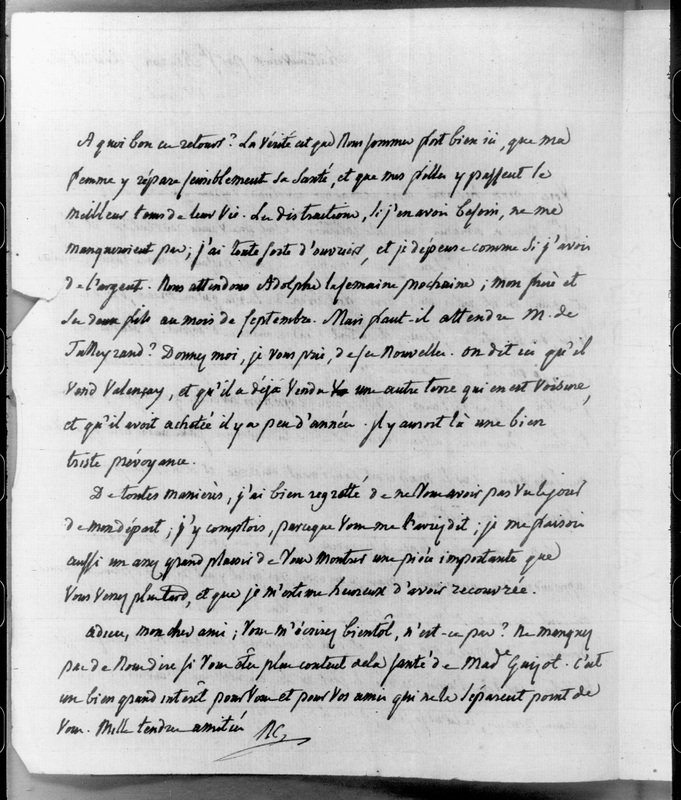 A quoi bon ce retour? La vérité est que nous sommes fort bien ici, que ma
femme y répare sensiblement sa santé, et que mes filles y passent le
meilleur tems de leur vie. Les distractions, si j'en avois besoin, ne me
manqueroient pas; j'ai toute sorte d'ouvriers, et je dépense comme si j'avois
de l'argent. Nous attendons Adolphe la semaine prochaine; mon frère et
ses deux fils au mois de septembre. Mais faut-il attendre M. de
Talleyrand? Donnez moi, je vous prie, de ses nouvelles. on dit ici qu'il
vend Valençay, et qu'il a déjà vendu une autre terre qui en est voisine,
et qu'il avoit achetée il y a peu d'années. Il y auroit là une bien
triste prévoyance.
De toutes manières, j'ai bien regretté de ne vous avoir pas vu le jour
de mon départ; j'y comptois, parceque vous me l'aviez dit; je me faisois
aussi un assez grand plaisir de vous montrer une pièce importante que
vous verrez plus tard, et que je m'estime heureux d'avoir recouvrée.
adieu, mon cher ami; vous m'écrirez bientôt, n'est-ce pas? Ne manquez
pas de nous dire si vous êtes plus content de la santé de Mad.e Guizot. c'est
un bien grand intérêt pour vous et pour vos amis qui ne la séparent point de
vous. Mille tendres amitiés RC